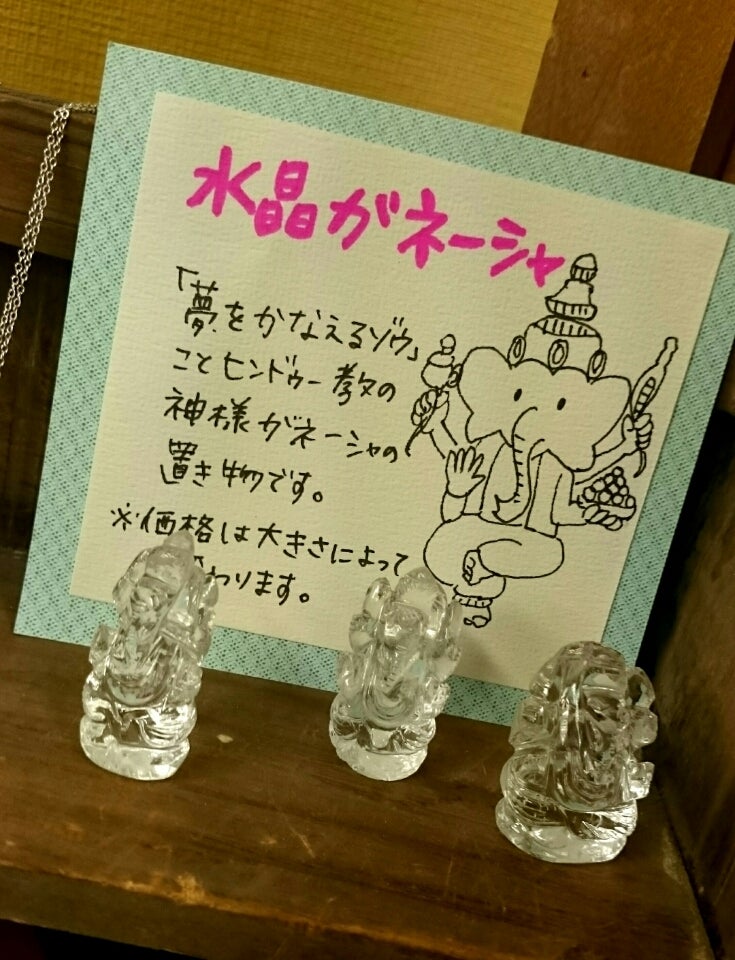 水晶ガネーシャ
「夢をかなえるゾウ」
ことヒンドゥー教の
神様ガネーシャの
置き物です。
※価格は大きさによって
わります。